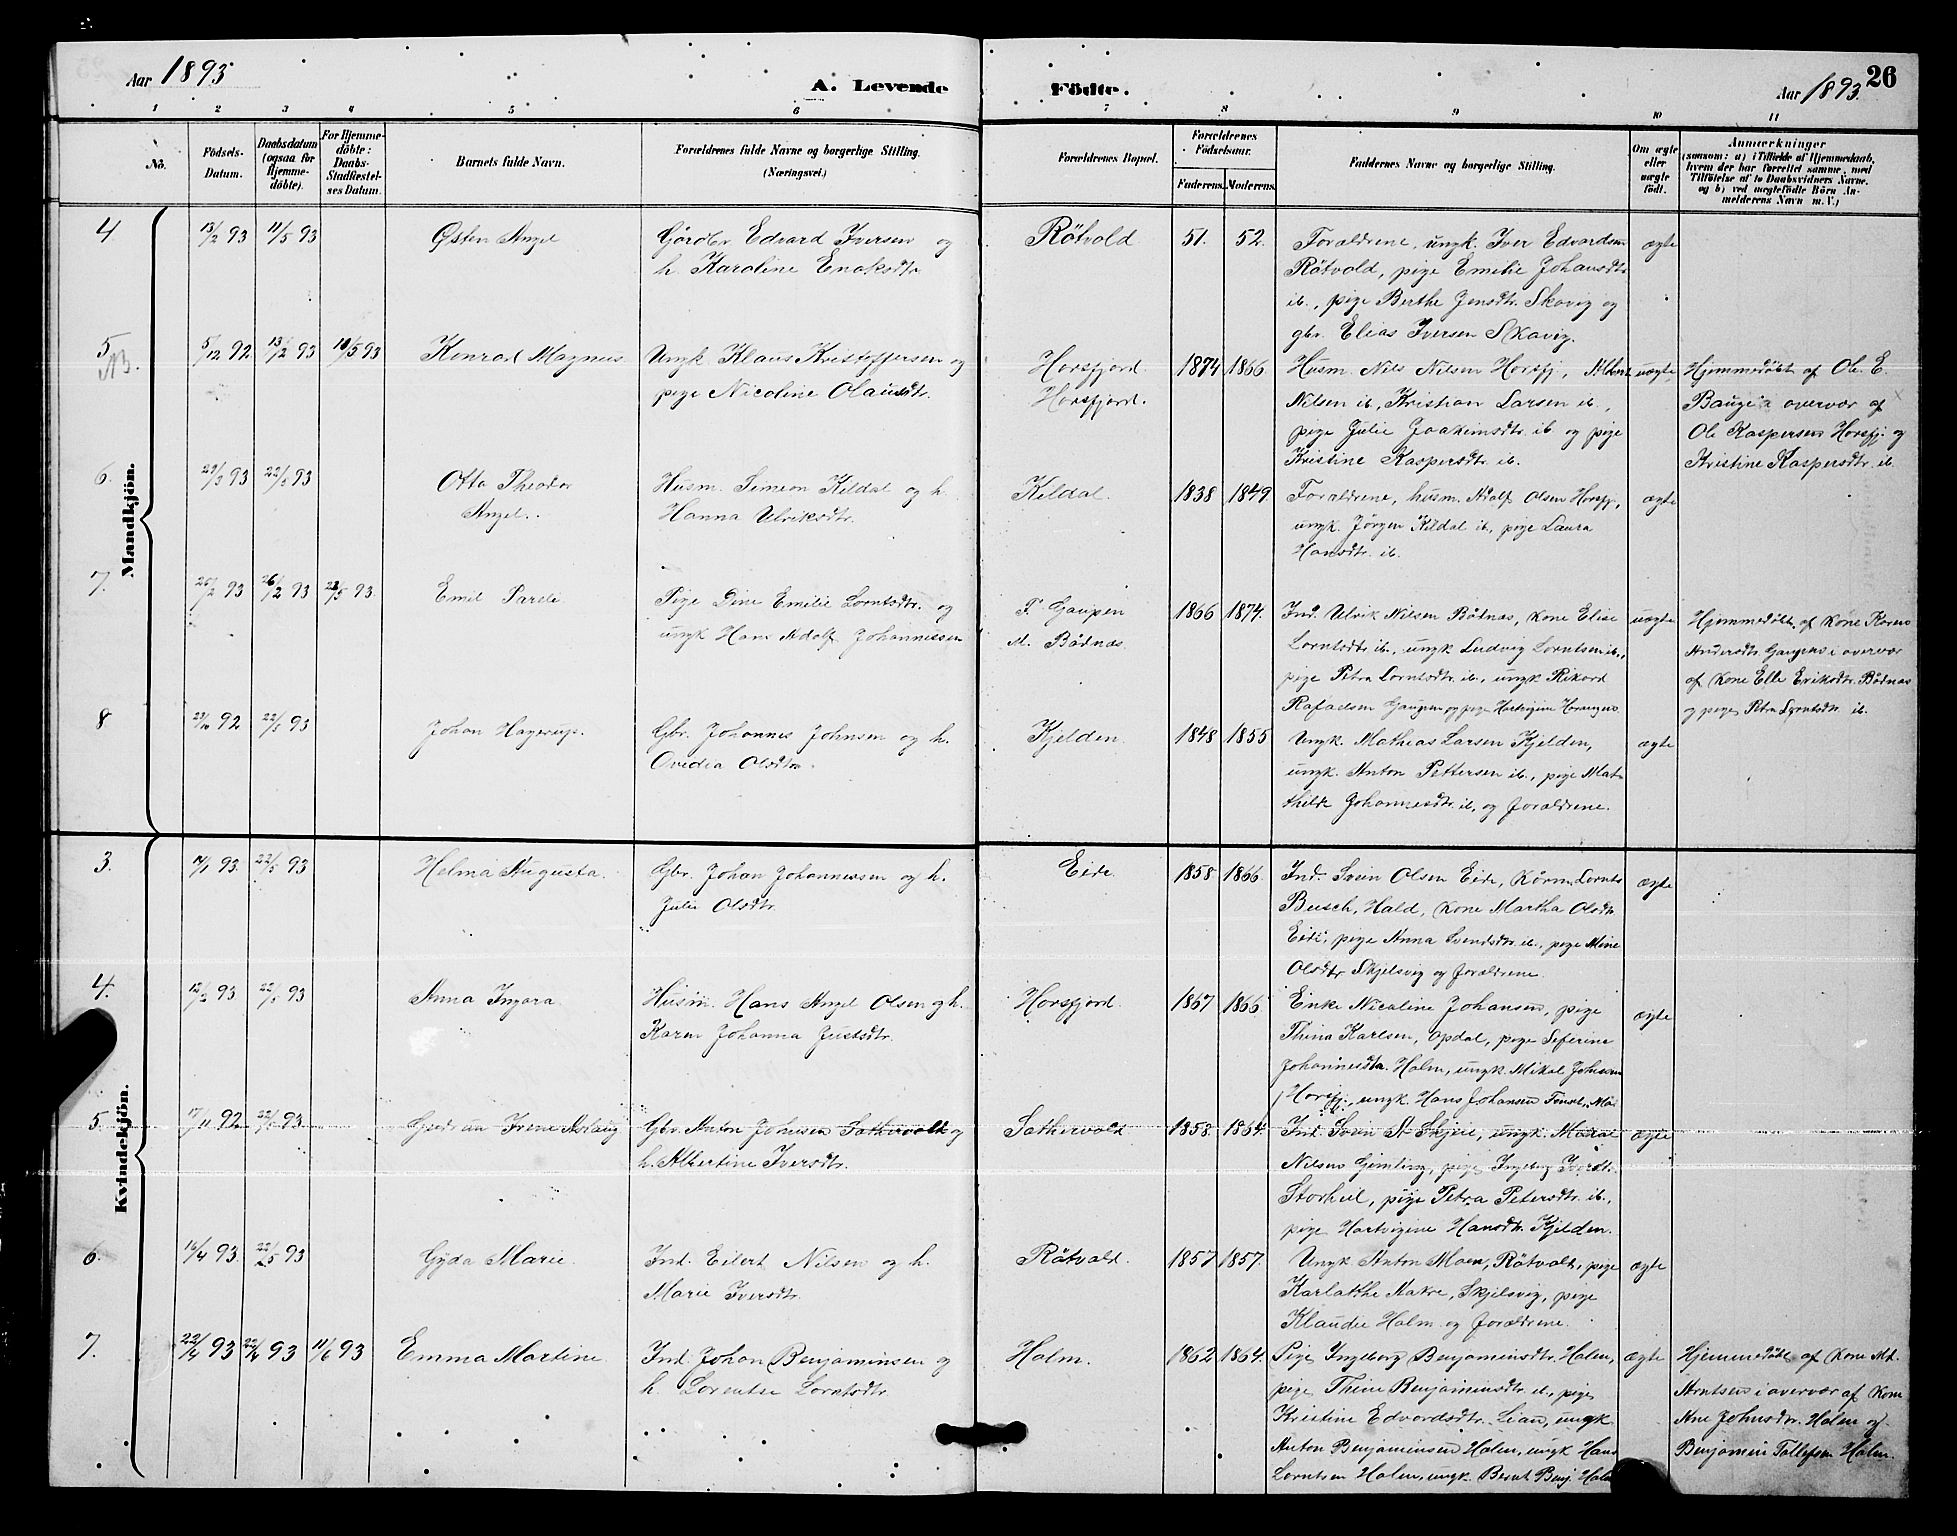 Aar 1893
A. Levende
Födte.
Aar 1893.
26
1 2 3 4 5 6 7 8 9 10 11
No.
Födsels-
Datum.
Daabsdatum
(ogsaa for
Hjemme-
döbte).
For Hjemme-
döbte:
Daabs-
Stadfæstel-
ses Datum.
Barnets fulde Navn.
Forældrenes fulde Navne og borgerlige Stilling.
(Næringsvei.)
Forældrenes Bopæl.
Forældrenes
Födselsaar.
Faderens. Moderens.
Faddernes Navne og borgerlige Stilling.
Om ægte
eller
uægte
födt.
Anmærkninger
(saasom: a) i Tilfælde af Hjemmedaab,
hvem der har forrettet samme, med
Tilföielse af to Daabsvidners Navne,
og b) ved uægtefödte Börn An-
melderens Navn m. V.)
Mandkjön.
4. 13/2 93 11/5 93 Østen Angel
Gårdbr Edvard Iversen og
h. Karoline Enoksdtr
Råtvold 51. 52.
Forældrene, ungk. Iver Edvardsen
Råtvold, pige Emilie Johansdtr
ib., pige Berthe Jensdtr. Skavig og
gbr. Elias Iversen Skavig.
ægte
5. NB. 5/12 92 13/2 93 10/5 93 Konrad Magnus
Ungk Klaus Kristoffersen og
pige Nicoline Olausdtr.
Horsfjord
Horsfjord.
1874 1866
Husm. Nils Nilsen Horsfj,
Nilsen ib, Kristian Larsen ib.,
pige Julie Joakimsdtr. ib og pige
Kristine Kaspersdtr. ib.
uægte
Hjemmedöbt af Ole E.
Bauge i overvær af
Ole Kaspersen Horsfj. og
Kristine Kaspersdtr. ib
6. 29/3 93 22/5 93 Otto Theodor
Angel.
Husm. Simeon Kildal og h.
Hanna Ulriksdtr.
Kildal. 1838 1849
Forældrene, husm. Adolf Olsen Horsfj,
ungk. Jörgen Kildal ib, pige Laura
Hansdtr. ib.
ægte
7. 20/2 93 26/2 93 23/5 93. Emil Pareli
Pige Dine Emilie Lorntsdtr. og
ungk Hans Adolf Johannessen
F. Gaupen
M. Bådnas.
1866 1874.
Ind. Ulrik Nilsen Bådnas, kone Elise
Lorntsdtr ib., ungk Ludvig Lorntsen ib.,
pige Petra Lorntsdtr. ib., ungk Rikard
Rafaelsen Gaupen og pige Hartvigine
uægte
Hjemmedöbt af Kone Karen
Andersdtr. Gaupen i overvær
af Kone Elle Eriksdtr. Bådnas
og pige Petra Lorntsdtr ib.
8 92 22/5 93 Johan Hagerup.
Gbr. Johannes Johnsen og h.
Ovidia Olsdtr.
Kjelden. 1848 1855
Ungk. Mathias Larsen Kjelden,
ungk. Anton Pettersen ib., pige Mat-
hilde Johannesdtr. ib, og forældrene.
ægte
Kvindekjön.
3. 93. 22/5 93 Helma Augusta.
Gbr. Johan Johannessen og h.
Julie Olsdtr.
Eide 1858 1866
Ind. Svein Olsen Eide, Lornts
Busch, Hald, Kone Martha Olsdtr
Eide, pige Anna Svendsdtr. ib., pige Mine
Olsdtr Skjelsvig og forældrene.
ægte
4. 12/3 93 22/5 93 Anna Ingara.
Husm. Hans Angel Olsen og h.
Karen Johanna Justsdtr.
Horsfjord. 1867 1866
Enke Nicoline Johansen, pige
Thina Karlsen, Opdal, pige Seferine
Johannesdtr. Halm, ungk Mikal Johnsen
Horsfj., ungk. Hans Johansen
ægte
5. 17/11 92 22/5 93 Gudrun Irene Aslaug
Gbr. Anton Johnsen Sathervold og
h. Albertine Iversdtr.
Sathervold 1858. 1864.
Ind Svein A. Skjei, ungk.
Nilsen Gimling, pige Ingeborg
Storheil, pige Petra Petersdtr. ib.,
pige Hartvigine Hansdtr. Kjelden.
ægte
6. 16/4 93. 22/5 93 Gyda Marie
Ind. Eilert Nilsen og h.
Marie Iversdtr.
Råtvold. 1857 1857.
Ungk Anton Moen, Råtvold, pige
Makre, Skjelsvig, pige
Klaudie Halm og forældrene.
ægte
7. 22/4 93 22/4 93 11/6 93 Emma Martine
Ind. Johan Benjaminsen og
h. Lorentse Lorntsdtr.
Halm. 1862 1864.
Pige Ingeborg Benjaminsdtr. Halm,
pige Thine Benjaminsdtr ib, pige
Kristine Edvardsdtr. Lian, ungk
Anton Benjaminsen Halm, ungk Hans
Lorntsen Halm, ungk. Bernt Benj. Halm
ægte
Hjemmedöbt af Kone Mt.
Arntsen i overvær af Kone
Ane Johnsdtr. Halm og
Benjamin Tollefsen Halm.